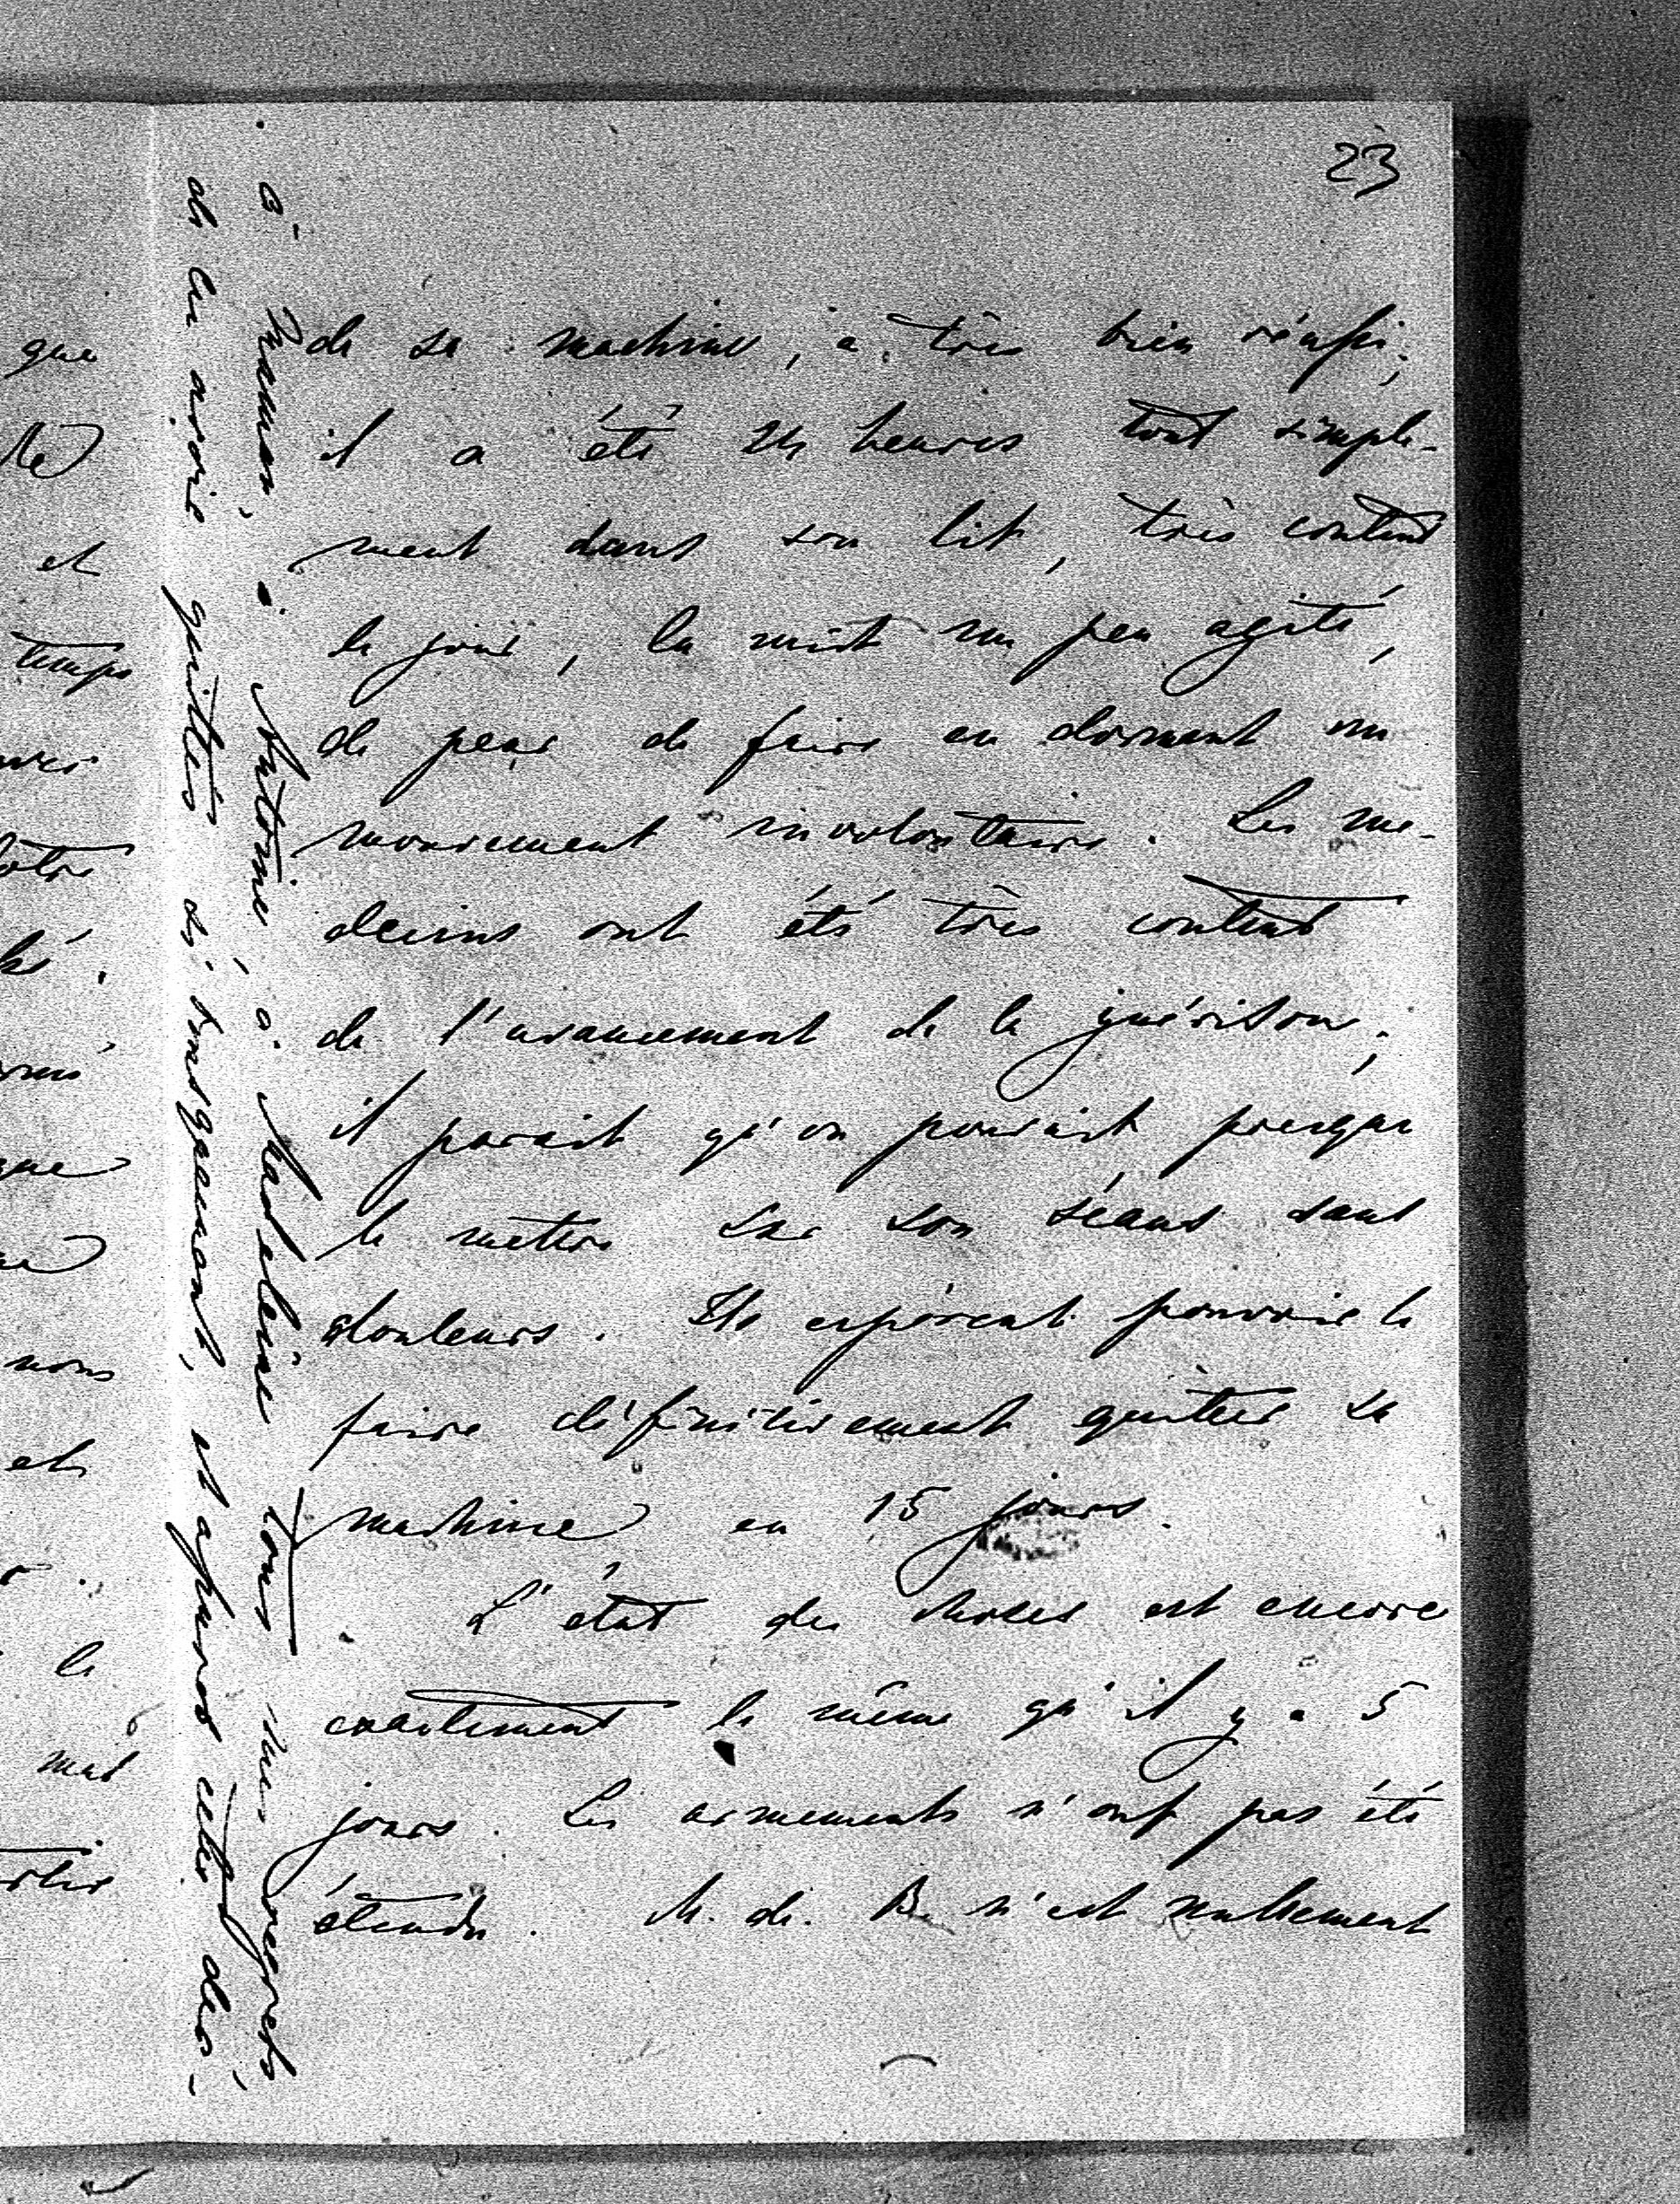 23
de sa machine, a très bien réussi;
il a été 24 heures tout simple-
ment dans son lit, très content
le jour, la nuit un peu agité,
de peur de faire en dormant un
mouvement involontaire. Les mé-
decins ont été très content
de l'avancement de la guérison;
il parait qu'on pourait presque
le mettre sur son séant sans
douleurs. Ils espèrent pouvoir le
faire définitivement quitter sa
machine en 15 jours.
L'état des choses est encore
exactement le même qu'il y a 5
jours. Les armements n'ont pas été
étendu. M. de B. n'est nullement
à maman, à Antoine, à Madeleine tous mes regrets,
de les avoir quittés si brusquement, et après cette des-
que
et
temps
nous
et
le